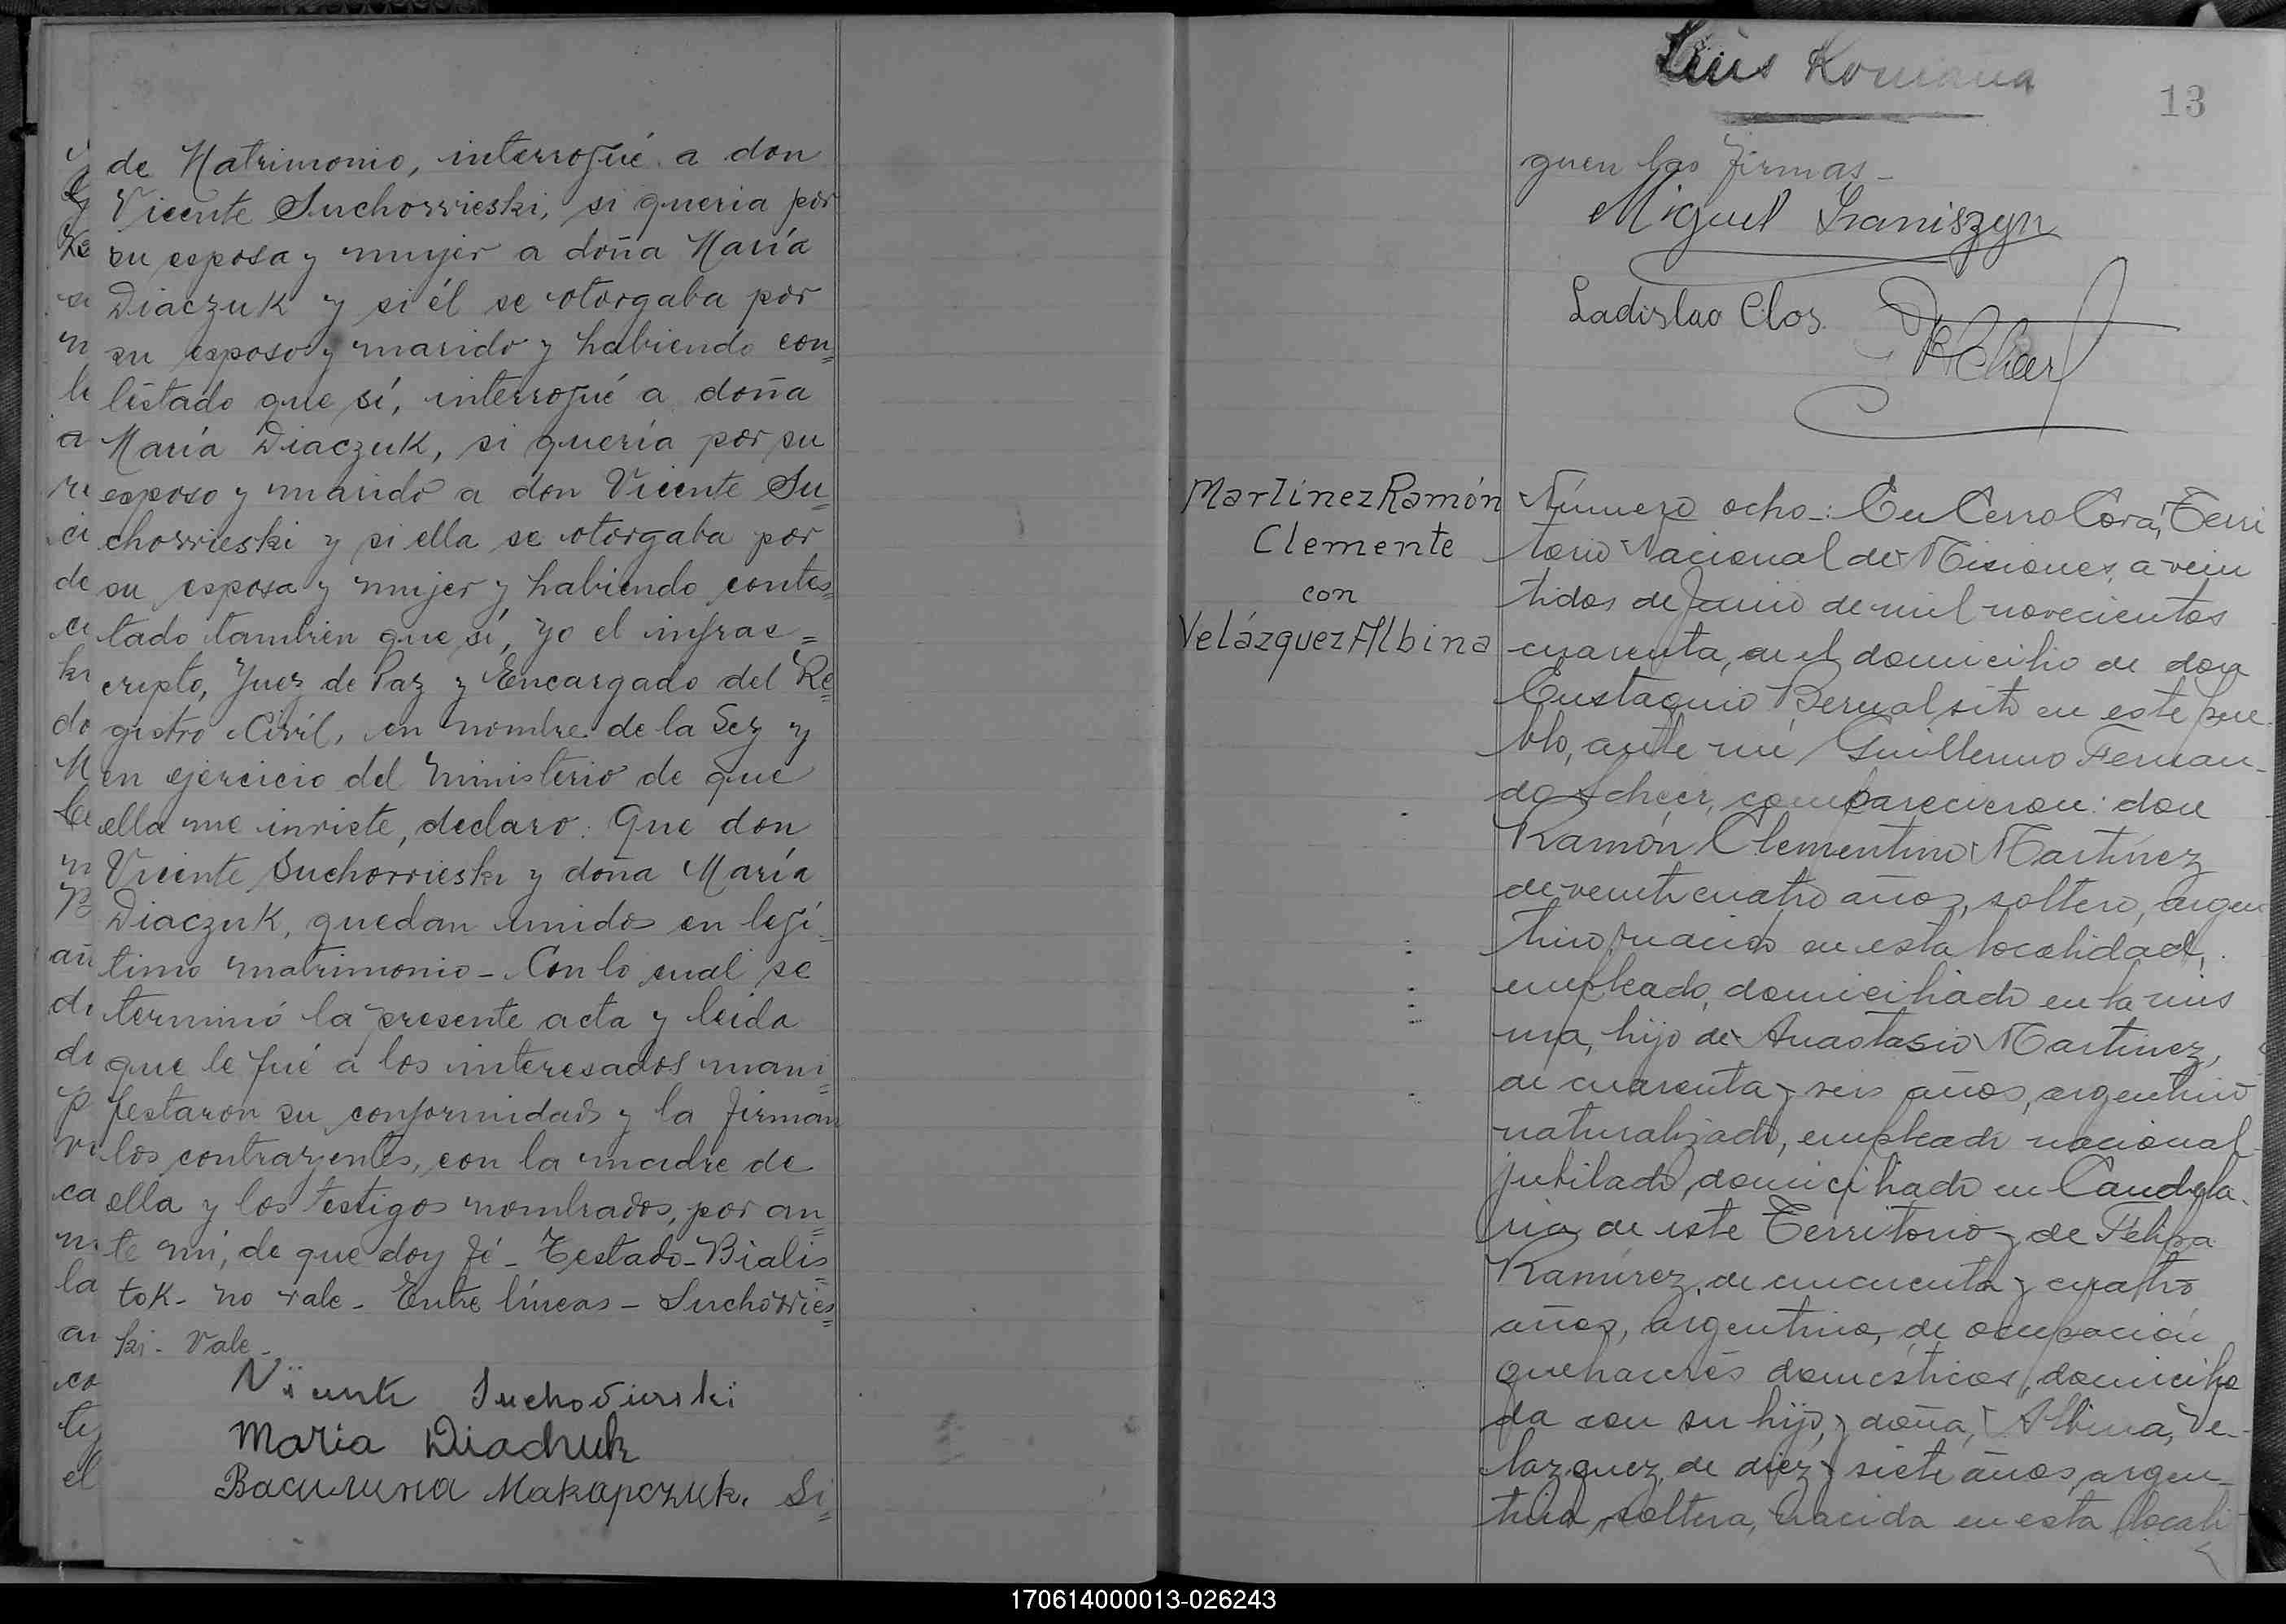 de Matrimonio, interrogué a don
Vicente Suchorrieski, si queria por
su esposa y mujer a doña María
Diaczuk y si él se otorgaba por
su esposo y marido y habiendo con=
testado que sí, interrogué a doña
María Diaczuk, si quería por su
esposo y marido a don Vicente Su=
chorrieski y si ella se otorgaba por
su esposa y mujer y habiendo contes=
tado tambien que sí, yo el infras=
cripto, Juez de Paz y Encargado del Re=
gistro Civil, en nombre de la Ley y
en ejercicio del ministerio de que
ella me inviste, declaro: Que don
Vicente Suchorrieski y doña María
Diaczuk, quedan unidos en legí=
timo matrimonio - Con lo cual se
terminó la presente acta y leida
que le fué a los interesados mani=
festaron su conformidad y la firman
los contrayentes, con la madre de
ella y los testigos nombrados, por an=
te mí, de que doy fé - Testado - Bialis=
tok - no vale - Entre líneas - Suchorries=
ki - Vale -
Maria Diachuk
Василина Макарczuk. Si=
Luis Romana
13
guen las firmas -
Miguel Iraniszyn
Ladislao Clos.
Martínez Ramón
Clemente
con
Velázquez Albina
Número ocho -: En Cerro Corá, Terri
torio Nacional de Misiones, a vein
tidos de Junio de mil novecientos
cuarenta, en el domicilio de don
Eustaquio Bernal sito en este pue-
blo, ante mí Guillermo Fernan-
do Scheer, comparecieron: don
Ramón Clementino Martínez
de veinticuatro años, soltero, argen
tino, nacido en esta localidad,
empleado, domiciliado en la mis
ma, hijo de Anastasio Martinez,
de cuarenta y seis años, argentino
naturalizado, empleado nacional
jubilado, domiciliado en Candela-
ria de este Territorio y de Felipa
Ramírez, de cincuenta y cuatro
años, argentina, de ocupación
quehaceres domésticos, domicilia
da con su hijo, y doña, Albina, Ve-
lazquez, de diez y siete años, argen-
tina, soltera, nacida en esta locali
170614000013-026243